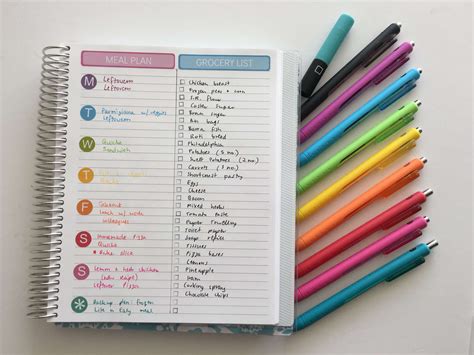 MEAL PLAN
M
Leftovers
Leftovers
T
Parmigiana w/ veggies
Leftovers
W
Quiche
Sandwich
T
F
Takeout
lunch w/ work
colleagues
S
Homemade Pizza
Quiche
S
Lemon + herb chicken
Leftover Pizza
Backup plan: frozen
Lite n Easy meal
GROCERY LIST
Chicken breast
Frozen peas + corn
S.R. flour
Caster Sugar
Brown Sugar
Bin bags
Barra fish
Roti bread
Philadelphia
Potatoes (2 no.)
Sweet Potatoes (2 no.)
Carrots (2 no.)
Shortcrust pastry
Eggs
Cheese
Bacon
Mixed herbs
Tomato paste
Paper Towelling
Toilet paper
Soap refill
Tissues
Pizza bases
Lemons
Pineapple
Ham
Cooking spray
Chocolate chips